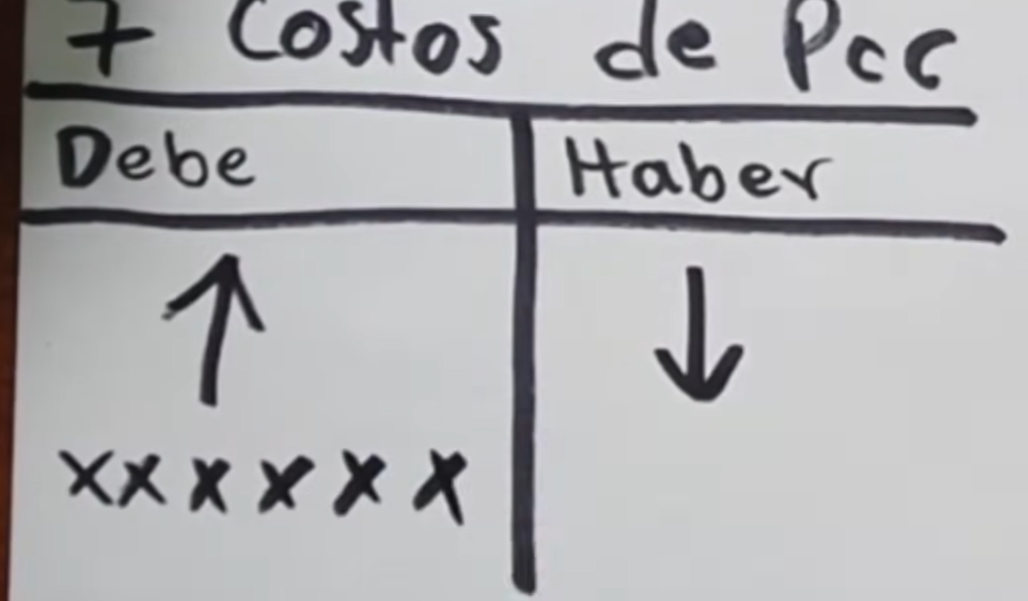 7 Costos de Pcc
Debe Haber
xxxxxx